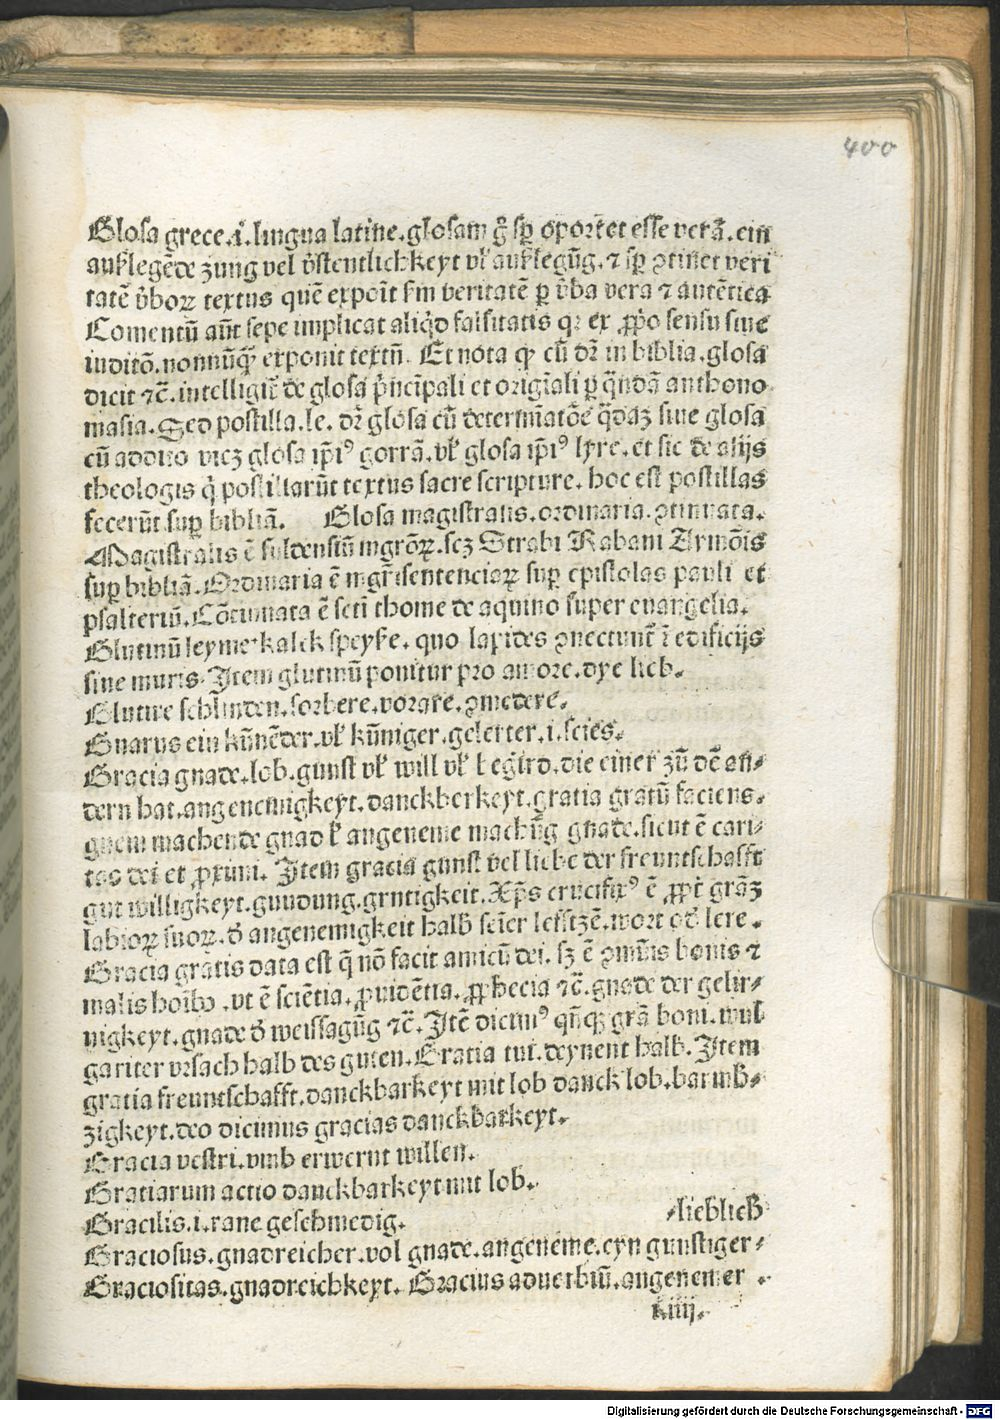 400
Glosa grece.i.lingua latine.glosam g̃ sp̃ oportet esse verã.ein
auſlegẽde zung vel v̓stentlichkeyt vl̓ auſlegũg.⁊ sp̃ ꝯtinet veri
tatẽ v̓boꝝ textus quẽ expoĩt ſm veritatẽ ꝑ v̓ba vera ⁊ autẽtica
Comentũ aũt sepe implicat aliq̃d falsitatis qꝛ ex ꝓp̓o sensu siue
iuditõ.nonnũqꝫ exponit textũ. Et nota ꝙ cũ dr̃ in biblia.glosa
dicit ⁊c̃.intelligit̃ de glosa p̓ncĩpali et origĩali ꝑ q̃ndã anthono
masia.Sed postilla.le.dr̃ glosa cũ determĩatõe q̃daꝫ siue glosa
cũ addito vicꝫ glosa ip̃iꝰ gorrã.vl̓ glosa ip̃iꝰ lyre.et sic de alijs
theologis q̓ postillarũt textus sacre scripture.hoc est postillas
fecerũt suꝑ bibliã. Glosa magistralis.ordinaria.ꝯtinuata.
Magistralis ẽ fuldensiũ mgr̃oꝝ.scꝫ Strabi Rabani Armõis
suꝑ bibliã.Ordinaria ẽ mgr̃i sentenciaꝝ suꝑ epistolas pauli et
psalteriũ.Cõtinnata ẽ scti thome de aquino super euangelia.
Glutinũ leyme kalck speyſe.quo lapides ꝯnectunt̃ ĩ edificijs
siue muris.Item glutinũ ponitur pro amore.dye lieb.
Glutire schlinden.sorbere.vorare.ꝯmedere.
Gnarus ein kũnẽder.vl̓ kũniger.gelerter.i.scies.
Gracia gnade.lob.gunst vl̓ will vl̓ begird.die einer zũ dẽ an⸗
dern hat.angenemigkeyt.danckberkeyt.gratia gratũ faciens.
gnem machende gnad vl̓ angeneme machũg gnade.sicut ẽ cari⸗
tas dei et ꝓximi. Item gracia gunst vel liebe der freuntschafft
gut willigkeyt.gundung.grutigkeit.Xp̃s crucifixꝰ ẽ ꝓpt̓ grãꝫ
labioꝝ suoꝝ.d̓ angenemigkeit halb seĩer lefftzẽ.wort od̓ lere.
Gracia gratis data est q̃ nõ facit amicũ dei. sꝫ ẽ ꝯmũis bonis ⁊
malis hoĩbꝰ.vt ẽ sciẽtia.ꝓuidẽtia.ꝓphecia ⁊c̃.gnade der gelir⸗
nigkeyt.gnade d̓ weissagũg ⁊c̃.Itẽ dicimꝰ qñqꝫ grã boni.wul
gariter vrsach halb des guten.Gratia tui.deynent halb.Item
gratia freuntschafft.danckbarkeyt mit lob danck lob.barmh̓⸗
zigkeyt.deo dicimus gracias danckbarkeyt.
Gracia vestri.vmb erwernt willen.
Gratiarum actio danckbarkeyt mit lob.
Gracilis.i.rane geschmedig. ⸗lieblich
Graciosus.gnadreicher.vol gnade.angeneme.eyn gunstiger⸗
Graciositas.gnadreichkeyt. Gracius aduerbiũ.angenemer.
kiiij.
Digitalisierung gefördert durch die Deutsche Forschungsgemeinschaft - DFG